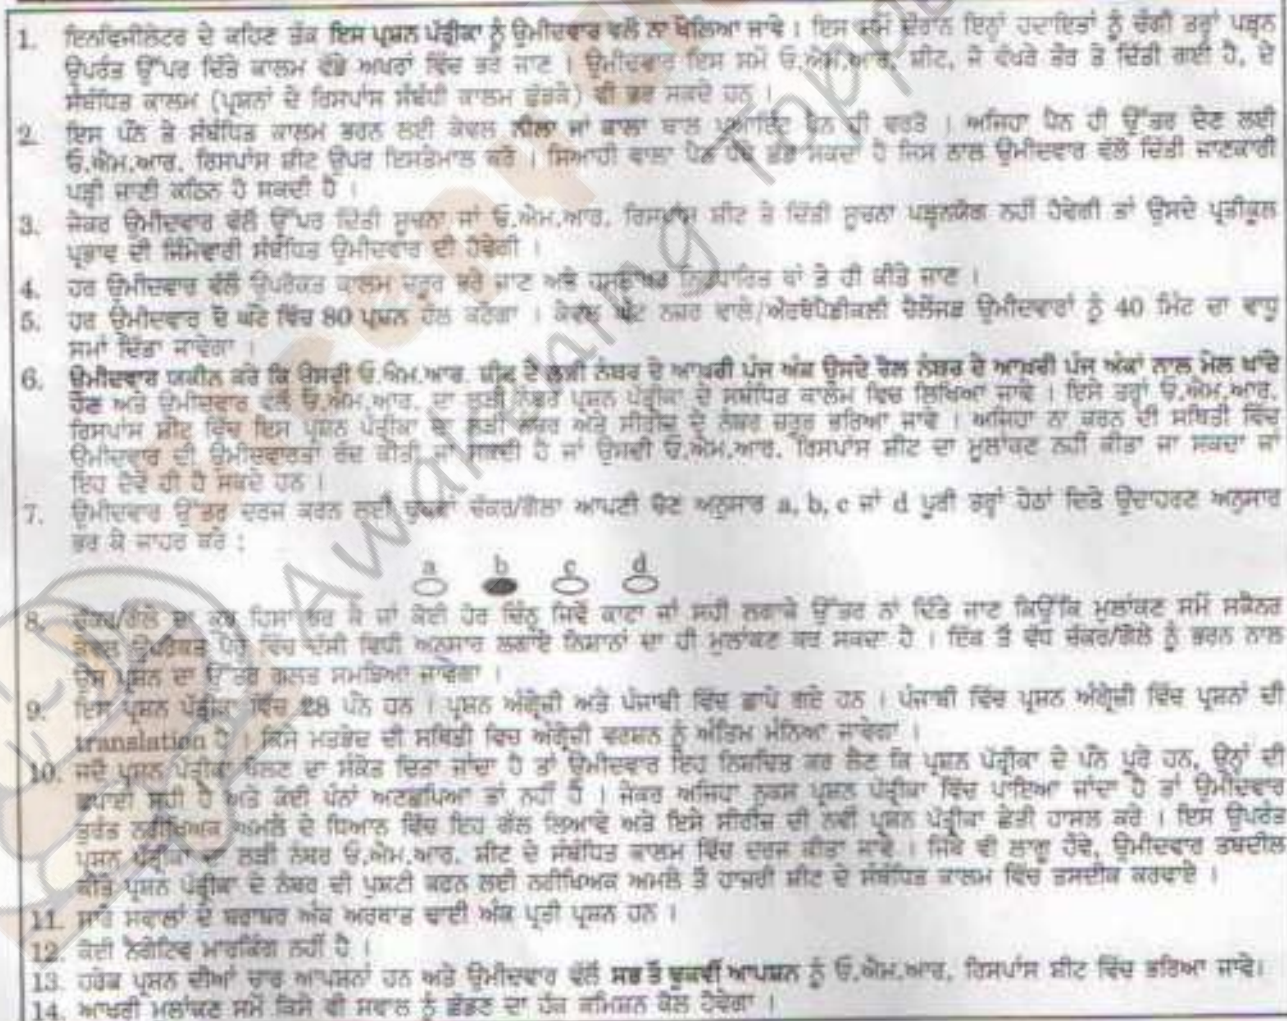 1. ਇਨਵਿਜੀਲੇਟਰ ਦੇ ਕਹਿਣ ਤੱਕ ਇਸ ਪ੍ਰਸ਼ਨ ਪੱਤ੍ਰੀਕਾ ਨੂੰ ਉਮੀਦਵਾਰ ਵਲੋਂ ਨਾ ਖੋਲਿਆ ਜਾਵੇ । ਇਸ ਸਮੇਂ ਦੌਰਾਨ ਇਨ੍ਹਾਂ ਹਦਾਇਤਾਂ ਨੂੰ ਚੰਗੀ ਤਰ੍ਹਾਂ ਪੜ੍ਹਨ
ਉਪਰੰਤ ਉੱਪਰ ਦਿੱਤੇ ਕਾਲਮ ਵੱਡੇ ਅਖਰਾਂ ਵਿੱਚ ਭਰੇ ਜਾਣ । ਉਮੀਦਵਾਰ ਇਸ ਸਮੇਂ ਓ.ਐਮ.ਆਰ. ਸ਼ੀਟ, ਜੋ ਵੱਖਰੇ ਤੌਰ ਤੇ ਦਿੱਤੀ ਗਈ ਹੈ, ਦੇ
ਸੰਬੰਧਿਤ ਕਾਲਮ (ਪ੍ਰਸ਼ਨਾਂ ਦੇ ਰਿਸਪਾਂਸ ਸੰਬੰਧੀ ਕਾਲਮ ਛੱਡਕੇ) ਵੀ ਭਰ ਸਕਦੇ ਹਨ ।
2. ਇਸ ਪੰਨੇ ਤੇ ਸੰਬੰਧਿਤ ਕਾਲਮ ਭਰਨ ਲਈ ਕੇਵਲ ਨੀਲਾ ਜਾਂ ਕਾਲਾ ਬਾਲ ਪੁਆਇੰਟ ਪੈਨ ਹੀ ਵਰਤੋ । ਅਜਿਹਾ ਪੈਨ ਹੀ ਉੱਤਰ ਦੇਣ ਲਈ
ਓ.ਐਮ.ਆਰ. ਰਿਸਪਾਂਸ ਸ਼ੀਟ ਉਪਰ ਇਸਤੇਮਾਲ ਕਰੋ । ਸਿਆਹੀ ਵਾਲਾ ਪੈਨ ਧੱਬੇ ਛੱਡ ਸਕਦਾ ਹੈ ਜਿਸ ਨਾਲ ਉਮੀਦਵਾਰ ਵੱਲੋਂ ਦਿੱਤੀ ਜਾਣਕਾਰੀ
ਪੜ੍ਹੀ ਜਾਣੀ ਕਠਿਨ ਹੋ ਸਕਦੀ ਹੈ ।
3. ਜੇਕਰ ਉਮੀਦਵਾਰ ਵੱਲੋਂ ਉੱਪਰ ਦਿੱਤੀ ਸੂਚਨਾ ਜਾਂ ਓ.ਐਮ.ਆਰ. ਰਿਸਪਾਂਸ ਸ਼ੀਟ ਤੇ ਦਿੱਤੀ ਸੂਚਨਾ ਪੜ੍ਹਨਯੋਗ ਨਹੀਂ ਹੋਵੇਗੀ ਤਾਂ ਉਸਦੇ ਪ੍ਰਤੀਕੂਲ
ਪ੍ਰਭਾਵ ਦੀ ਜਿੰਮੇਵਾਰੀ ਸੰਬੰਧਿਤ ਉਮੀਦਵਾਰ ਦੀ ਹੋਵੇਗੀ ।
4. ਹਰ ਉਮੀਦਵਾਰ ਵੱਲੋਂ ਉਪਰੋਕਤ ਕਾਲਮ ਜ਼ਰੂਰ ਭਰੇ ਜਾਣ ਅਤੇ ਹਸਤਾਖਰ ਨਿਰਧਾਰਿਤ ਥਾਂ ਤੇ ਹੀ ਕੀਤੇ ਜਾਣ ।
5. ਹਰ ਉਮੀਦਵਾਰ ਦੋ ਘੰਟੇ ਵਿੱਚ 80 ਪ੍ਰਸ਼ਨ ਹੱਲ ਕਰੇਗਾ । ਕੇਵਲ ਘੱਟ ਨਜ਼ਰ ਵਾਲੇ/ਔਰਥੋਪੈਡੀਕਲੀ ਚੈਲੇਂਜਡ ਉਮੀਦਵਾਰਾਂ ਨੂੰ 40 ਮਿੰਟ ਦਾ ਵਾਧੂ
ਸਮਾਂ ਦਿੱਤਾ ਜਾਵੇਗਾ ।
6. ਉਮੀਦਵਾਰ ਯਕੀਨ ਕਰੇ ਕਿ ਉਸਦੀ ਓ.ਐਮ.ਆਰ. ਸ਼ੀਟ ਦੇ ਲੜੀ ਨੰਬਰ ਦੇ ਆਖਰੀ ਪੰਜ ਅੰਕ ਉਸਦੇ ਰੋਲ ਨੰਬਰ ਦੇ ਆਖਰੀ ਪੰਜ ਅੰਕਾਂ ਨਾਲ ਮੇਲ ਖਾਂਦੇ
ਹੋਣ ਅਤੇ ਉਮੀਦਵਾਰ ਵੱਲੋਂ ਓ.ਐਮ.ਆਰ. ਦਾ ਲੜੀ ਨੰਬਰ ਪ੍ਰਸ਼ਨ ਪੱਤ੍ਰੀਕਾ ਦੇ ਸਬੰਧਿਤ ਕਾਲਮ ਵਿਚ ਲਿਖਿਆ ਜਾਵੇ । ਇਸੇ ਤਰ੍ਹਾਂ ਓ.ਐਮ.ਆਰ.
ਰਿਸਪਾਂਸ ਸ਼ੀਟ ਵਿੱਚ ਇਸ ਪ੍ਰਸ਼ਨ ਪੱਤ੍ਰੀਕਾ ਦਾ ਲੜੀ ਨੰਬਰ ਅਤੇ ਸੀਰੀਜ਼ ਦੇ ਨੰਬਰ ਜ਼ਰੂਰ ਭਰਿਆ ਜਾਵੇ । ਅਜਿਹਾ ਨਾ ਕਰਨ ਦੀ ਸਥਿਤੀ ਵਿੱਚ
ਉਮੀਦਵਾਰ ਦੀ ਉਮੀਦਵਾਰਤਾ ਰੱਦ ਕੀਤੀ ਜਾ ਸਕਦੀ ਹੈ ਜਾਂ ਉਸਦੀ ਓ.ਐਮ.ਆਰ. ਰਿਸਪਾਂਸ ਸ਼ੀਟ ਦਾ ਮੁਲਾਂਕਣ ਨਹੀਂ ਕੀਤਾ ਜਾ ਸਕਦਾ ਜਾਂ
ਇਹ ਦੋਵੇਂ ਹੀ ਹੋ ਸਕਦੇ ਹਨ ।
7. ਉਮੀਦਵਾਰ ਉੱਤਰ ਦਰਜ ਕਰਨ ਲਈ ਢੁਕਵਾਂ ਚੱਕਰ/ਗੋਲਾ ਆਪਣੀ ਚੋਣ ਅਨੁਸਾਰ a, b, c ਜਾਂ d ਪੂਰੀ ਤਰ੍ਹਾਂ ਹੇਠਾਂ ਦਿੱਤੇ ਉਦਾਹਰਣ ਅਨੁਸਾਰ
ਭਰ ਕੇ ਜਾਹਰ ਕਰੇ :
a b c d
8. ਚੱਕਰ/ਗੋਲੇ ਦਾ ਕੁਝ ਹਿਸਾ ਭਰ ਕੇ ਜਾਂ ਕੋਈ ਹੋਰ ਚਿੰਨ੍ਹ ਜਿਵੇਂ ਕਾਟਾ ਜਾਂ ਸਹੀ ਲਗਾਕੇ ਉੱਤਰ ਨਾਂ ਦਿੱਤੇ ਜਾਣ ਕਿਉਂਕਿ ਮੁਲਾਂਕਣ ਸਮੇਂ ਸਕੈਨਰ
ਕੇਵਲ ਉਪਰੋਕਤ ਪੈਰੇ ਵਿੱਚ ਦੱਸੀ ਵਿਧੀ ਅਨੁਸਾਰ ਲਗਾਏ ਨਿਸ਼ਾਨਾਂ ਦਾ ਹੀ ਮੁਲਾਂਕਣ ਕਰ ਸਕਦਾ ਹੈ । ਇੱਕ ਤੋਂ ਵੱਧ ਚੱਕਰ/ਗੋਲੇ ਨੂੰ ਭਰਨ ਨਾਲ
ਉਸ ਪ੍ਰਸ਼ਨ ਦਾ ਉੱਤਰ ਗਲਤ ਸਮਝਿਆ ਜਾਵੇਗਾ ।
9. ਇਸ ਪ੍ਰਸ਼ਨ ਪੱਤ੍ਰੀਕਾ ਵਿੱਚ 28 ਪੰਨੇ ਹਨ । ਪ੍ਰਸ਼ਨ ਅੰਗ੍ਰੇਜ਼ੀ ਅਤੇ ਪੰਜਾਬੀ ਵਿੱਚ ਛਾਪੇ ਗਏ ਹਨ । ਪੰਜਾਬੀ ਵਿੱਚ ਪ੍ਰਸ਼ਨ ਅੰਗ੍ਰੇਜ਼ੀ ਵਿੱਚ ਪ੍ਰਸ਼ਨਾਂ ਦੀ
translation ਹੈ । ਕਿਸੇ ਮਤਭੇਦ ਦੀ ਸਥਿਤੀ ਵਿਚ ਅੰਗ੍ਰੇਜ਼ੀ ਵਰਸ਼ਨ ਨੂੰ ਅੰਤਿਮ ਮੰਨਿਆ ਜਾਵੇਗਾ ।
10. ਜਦੋਂ ਪ੍ਰਸ਼ਨ ਪੱਤ੍ਰੀਕਾ ਖੋਲਣ ਦਾ ਸੰਕੇਤ ਦਿਤਾ ਜਾਂਦਾ ਹੈ ਤਾਂ ਉਮੀਦਵਾਰ ਇਹ ਨਿਸ਼ਚਿਤ ਕਰ ਲੈਣ ਕਿ ਪ੍ਰਸ਼ਨ ਪੱਤ੍ਰੀਕਾ ਦੇ ਪੰਨੇ ਪੂਰੇ ਹਨ, ਉਨ੍ਹਾਂ ਦੀ
ਛਪਾਈ ਸਹੀ ਹੈ ਅਤੇ ਕੋਈ ਪੰਨਾ ਅਣਛਪਿਆ ਤਾਂ ਨਹੀਂ ਹੈ । ਜੇਕਰ ਅਜਿਹਾ ਨੁਕਸ ਪ੍ਰਸ਼ਨ ਪੱਤ੍ਰੀਕਾ ਵਿੱਚ ਪਾਇਆ ਜਾਂਦਾ ਹੈ ਤਾਂ ਉਮੀਦਵਾਰ
ਤੁਰੰਤ ਨਰੀਖਿਅਕ ਅਮਲੇ ਦੇ ਧਿਆਨ ਵਿੱਚ ਇਹ ਗੱਲ ਲਿਆਵੇ ਅਤੇ ਇਸੇ ਸੀਰੀਜ਼ ਦੀ ਨਵੀਂ ਪ੍ਰਸ਼ਨ ਪੱਤ੍ਰੀਕਾ ਛੇਤੀ ਹਾਸਲ ਕਰੇ । ਇਸ ਉਪਰੰਤ
ਪ੍ਰਸ਼ਨ ਪੱਤ੍ਰੀਕਾ ਦਾ ਲੜੀ ਨੰਬਰ ਓ.ਐਮ.ਆਰ. ਸ਼ੀਟ ਦੇ ਸੰਬੰਧਿਤ ਕਾਲਮ ਵਿੱਚ ਦਰਜ ਕੀਤਾ ਜਾਵੇ । ਜਿਥੇ ਵੀ ਲਾਗੂ ਹੋਵੇ, ਉਮੀਦਵਾਰ ਤਬਦੀਲ
ਕੀਤੇ ਪ੍ਰਸ਼ਨ ਪੱਤ੍ਰੀਕਾ ਦੇ ਨੰਬਰ ਦੀ ਪੁਸ਼ਟੀ ਕਰਨ ਲਈ ਨਰੀਖਿਅਕ ਅਮਲੇ ਤੋਂ ਹਾਜ਼ਰੀ ਸ਼ੀਟ ਦੇ ਸੰਬੰਧਿਤ ਕਾਲਮ ਵਿੱਚ ਤਸਦੀਕ ਕਰਵਾਏ ।
11. ਸਾਰੇ ਸਵਾਲਾਂ ਦੇ ਬਰਾਬਰ ਅੰਕ ਅਰਥਾਤ ਢਾਈ ਅੰਕ ਪ੍ਰਤੀ ਪ੍ਰਸ਼ਨ ਹਨ ।
12. ਕੋਈ ਨੈਗੇਟਿਵ ਮਾਰਕਿੰਗ ਨਹੀਂ ਹੈ ।
13. ਹਰੇਕ ਪ੍ਰਸ਼ਨ ਦੀਆਂ ਚਾਰ ਆਪਸ਼ਨਾਂ ਹਨ ਅਤੇ ਉਮੀਦਵਾਰ ਵੱਲੋਂ ਸਭ ਤੋਂ ਢੁਕਵੀਂ ਆਪਸ਼ਨ ਨੂੰ ਓ.ਐਮ.ਆਰ. ਰਿਸਪਾਂਸ ਸ਼ੀਟ ਵਿੱਚ ਭਰਿਆ ਜਾਵੇ।
14. ਆਖਰੀ ਮੁਲਾਂਕਣ ਸਮੇਂ ਕਿਸੇ ਵੀ ਸਵਾਲ ਨੂੰ ਛੱਡਣ ਦਾ ਹੱਕ ਕਮਿਸ਼ਨ ਕੋਲ ਹੋਵੇਗਾ ।
Awakening Topp